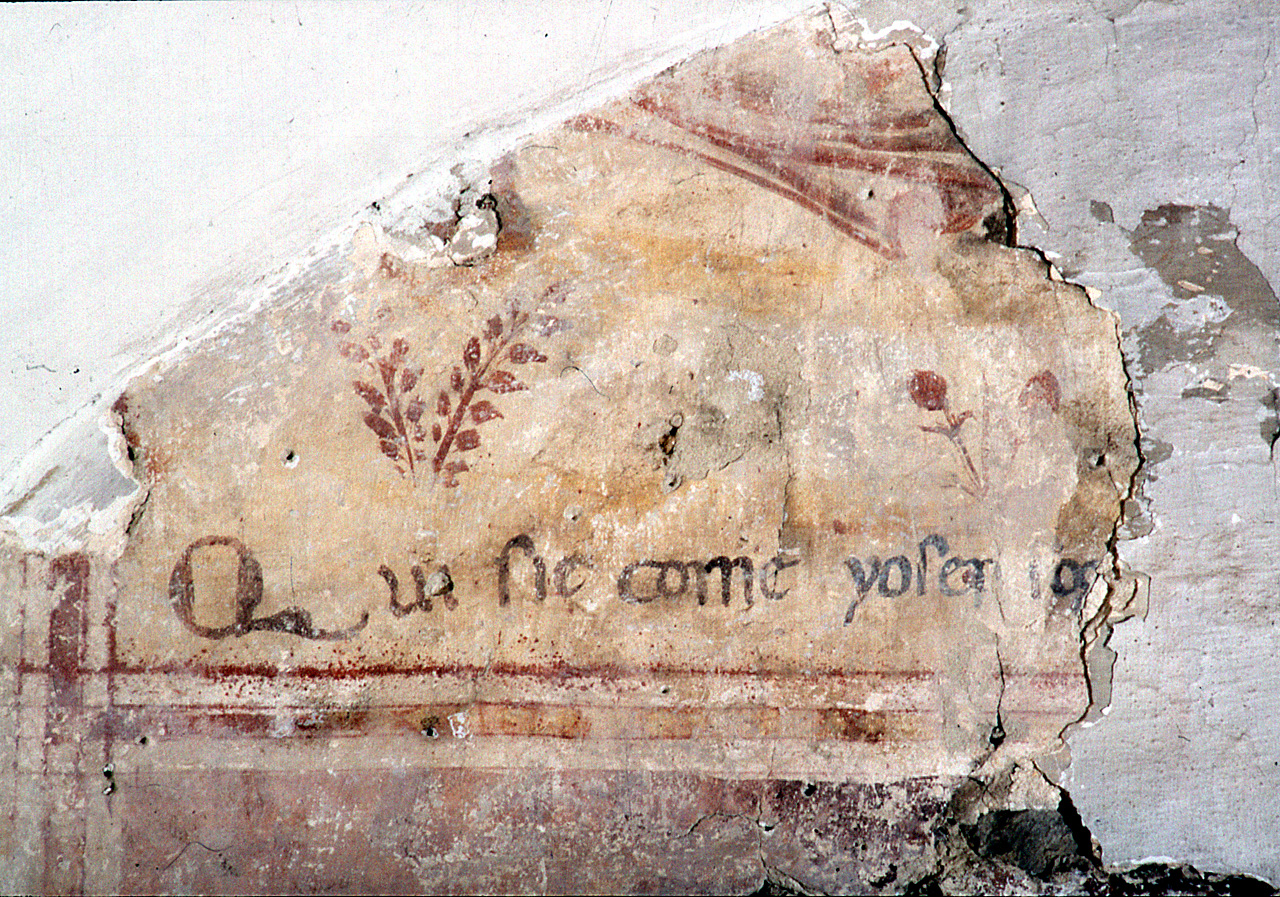 Qui sie come yosep